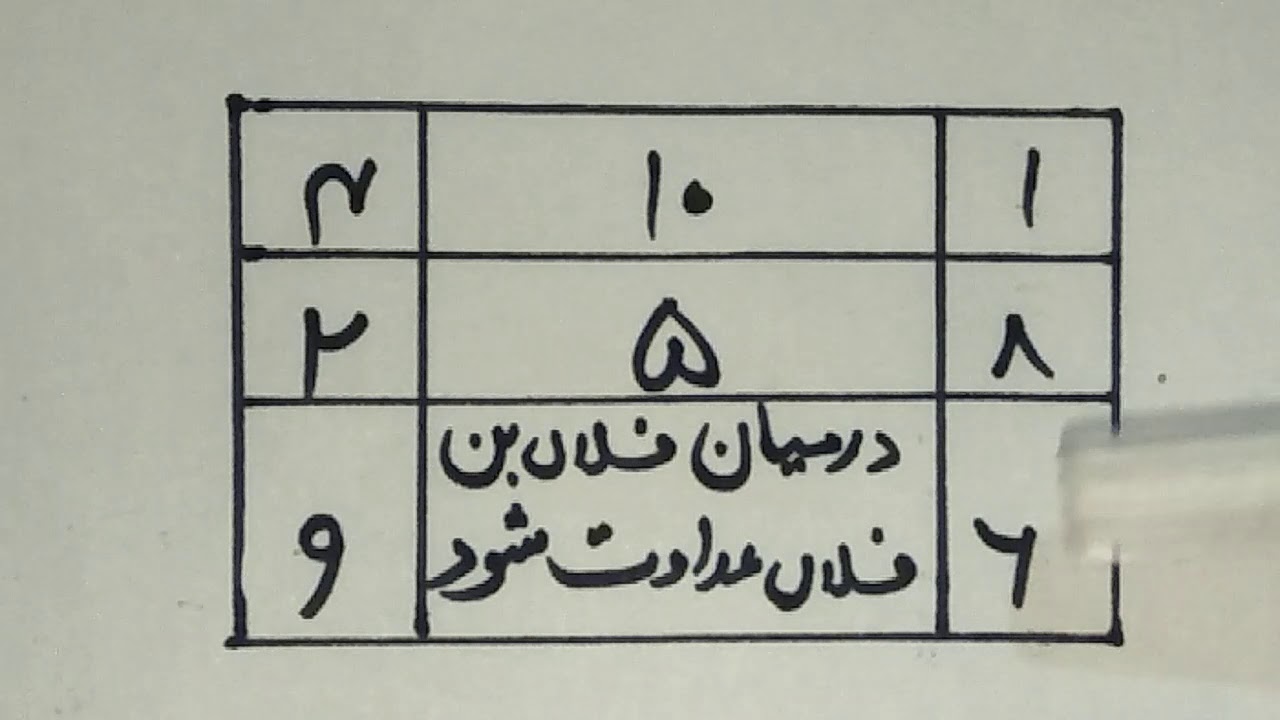 ۱ ۱۰ ۴
۸ ۵ ۲
درمیان فلاں بن
۶ فلاں عداوت شود ۹